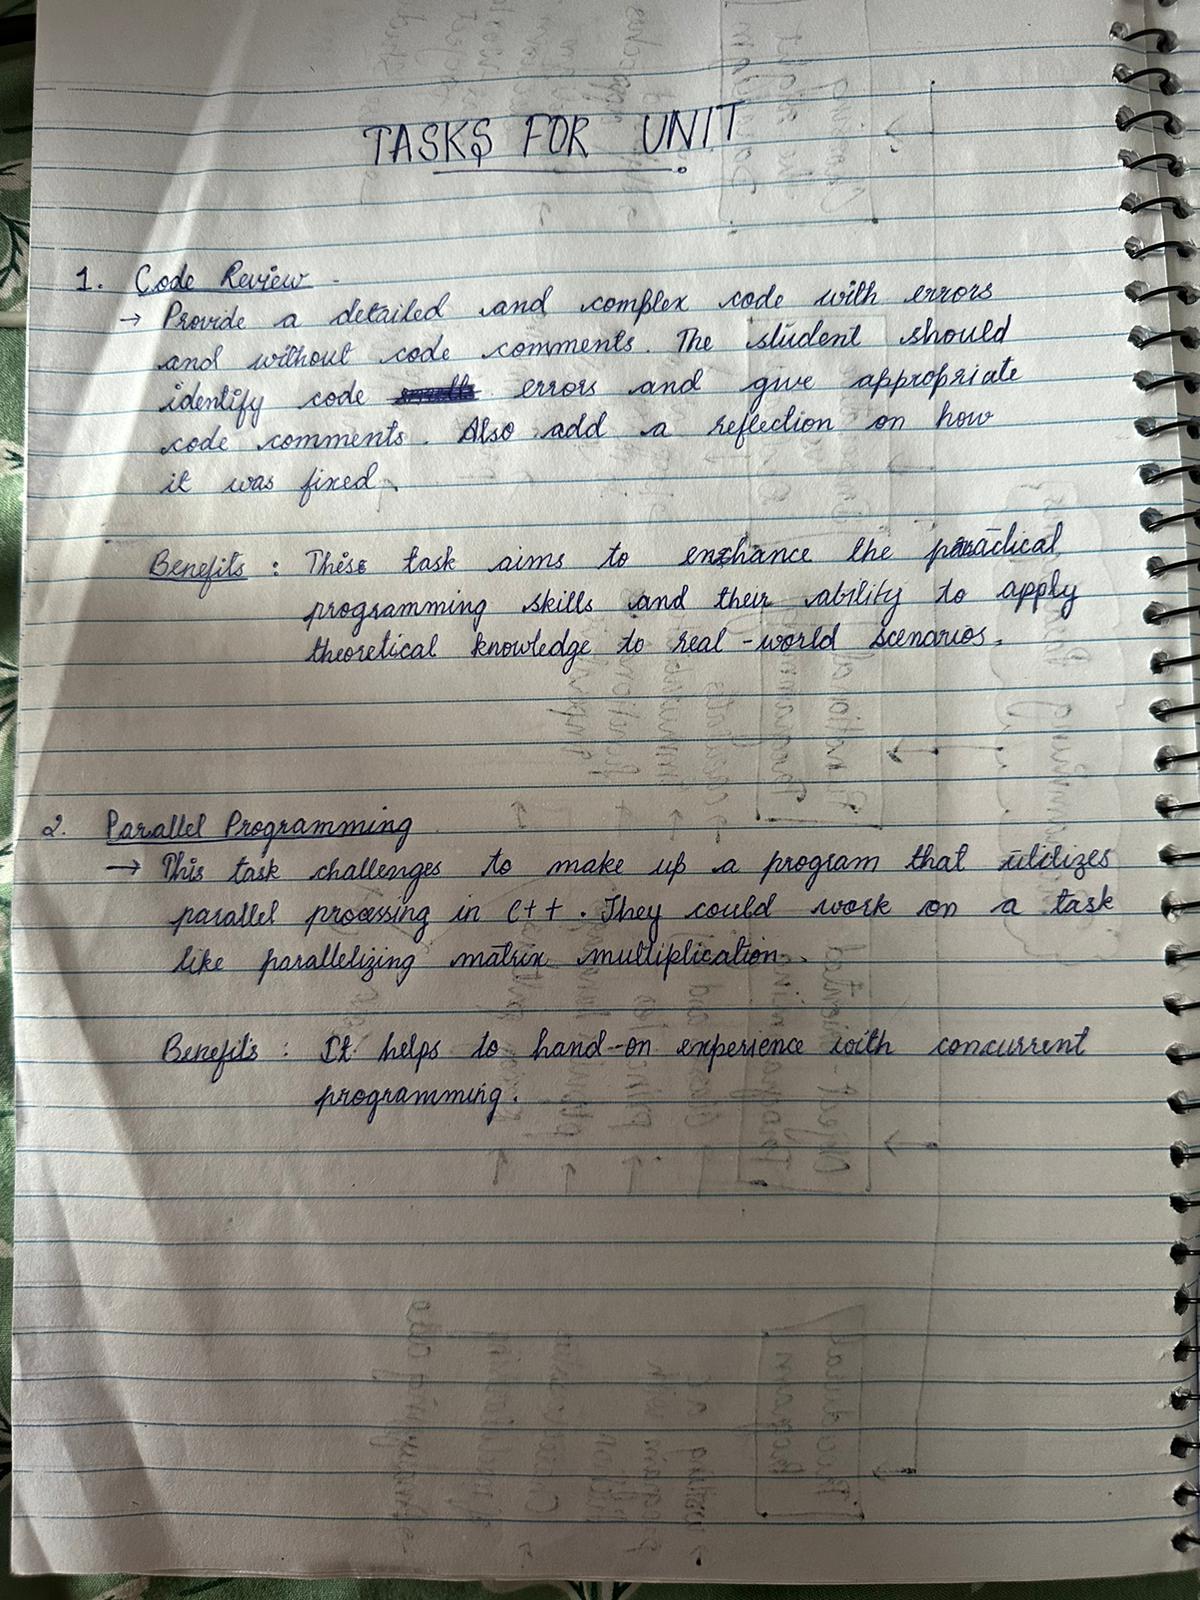 TASKS FOR UNIT
1. Code Review -
→ Provide a detailed and complex code with errors
and without code comments. The student should
identify code errors and give appropriate
code comments. Also add a reflection on how
it was fixed.
Benefits : This task aims to enhance the practical
programming skills and their ability to apply
theoretical knowledge to real-world scenarios.
2. Parallel Programming
→ This task challenges to make up a program that utilizes
parallel processing in C++. They could work on a task
like parallelizing matrix multiplication.
Benefits : It helps to hand-on experience with concurrent
programming.